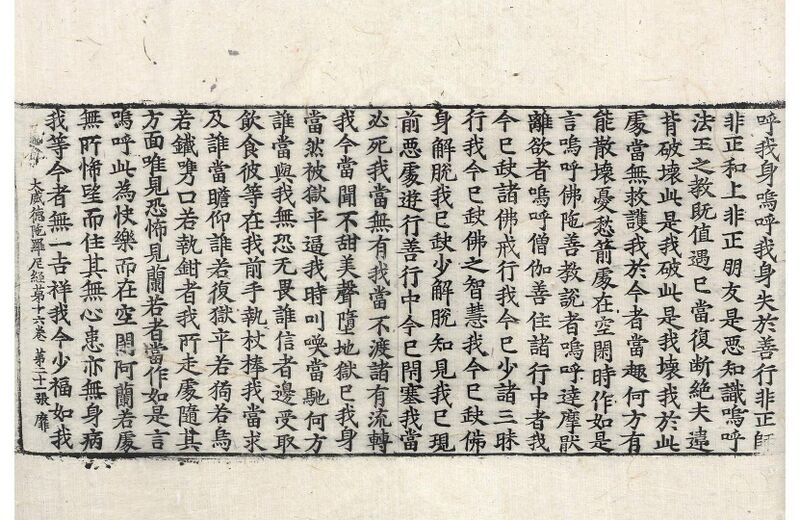 呼我身嗚呼我身失於善行非正師
非正和上非正朋友是惡知識嗚呼
法王之教既值遇已當復断絶夫違
背破壞此是我破此是我壞我於此
處當無救護我於今者當趣何方有
能散壞憂愁箭處在空閑時作如是
言嗚呼佛陁善教說者嗚呼達摩猒
離欲者嗚呼僧伽善住諸行中者我
今已缺諸佛戒行我今已少諸三昧
行我今已缺佛之智慧我今已缺佛
身解脫我已缺少解脫知見我已現
前惡處遊行善行中今已閇塞我當
必死我當無有我當不渡諸有流轉
我今當聞不甜美聲墮地獄已我身
當然被獄卒逼我時叫喚當馳何方
誰當與我無恐无畏誰信者邊受取
飲食彼等在我前手執杖棒我當求
及誰當瞻仰誰若復獄卒若狗若烏
若鐵㭰口若執鉗者我所走處隨其
方面唯見恐怖見蘭若者當作如是言
嗚呼此為快樂而在空閑阿蘭若處
無所怖望而住其無心患亦無身病
我等今者無一吉祥我今少福如我
大威德陁羅尼経苐十六卷 第二十一張 靡